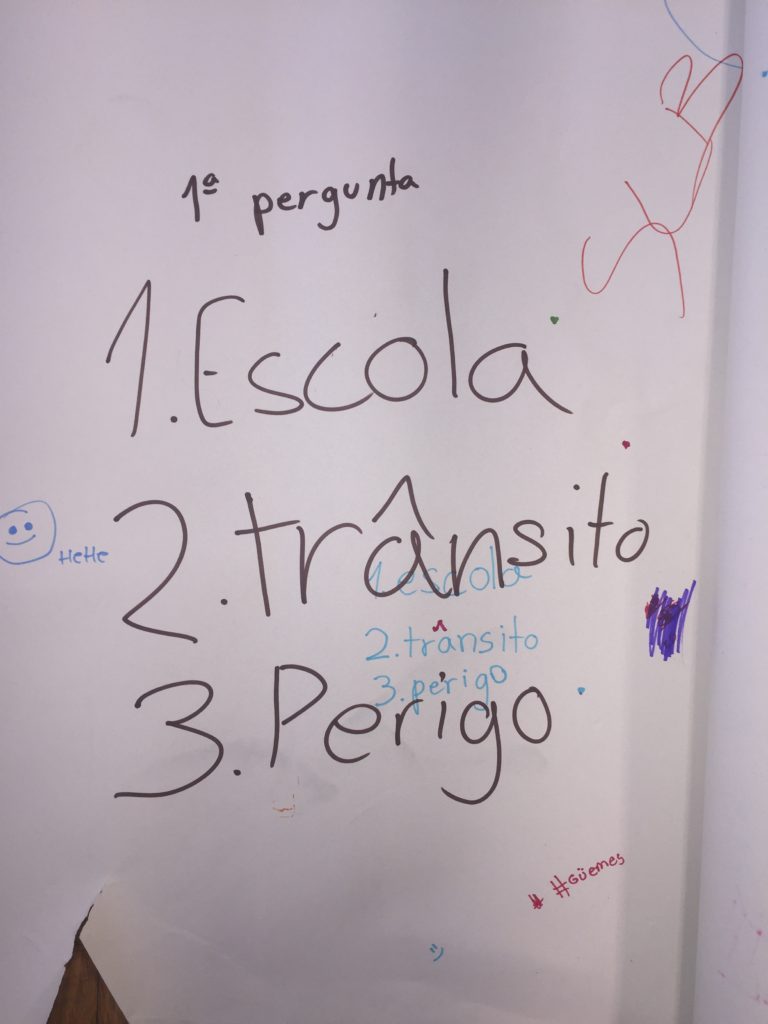 1ª pergunta
1. Escola
2. trânsito
HeHe
1 escola
2. trânsito
3. perigo
3. Perigo
#Güemes